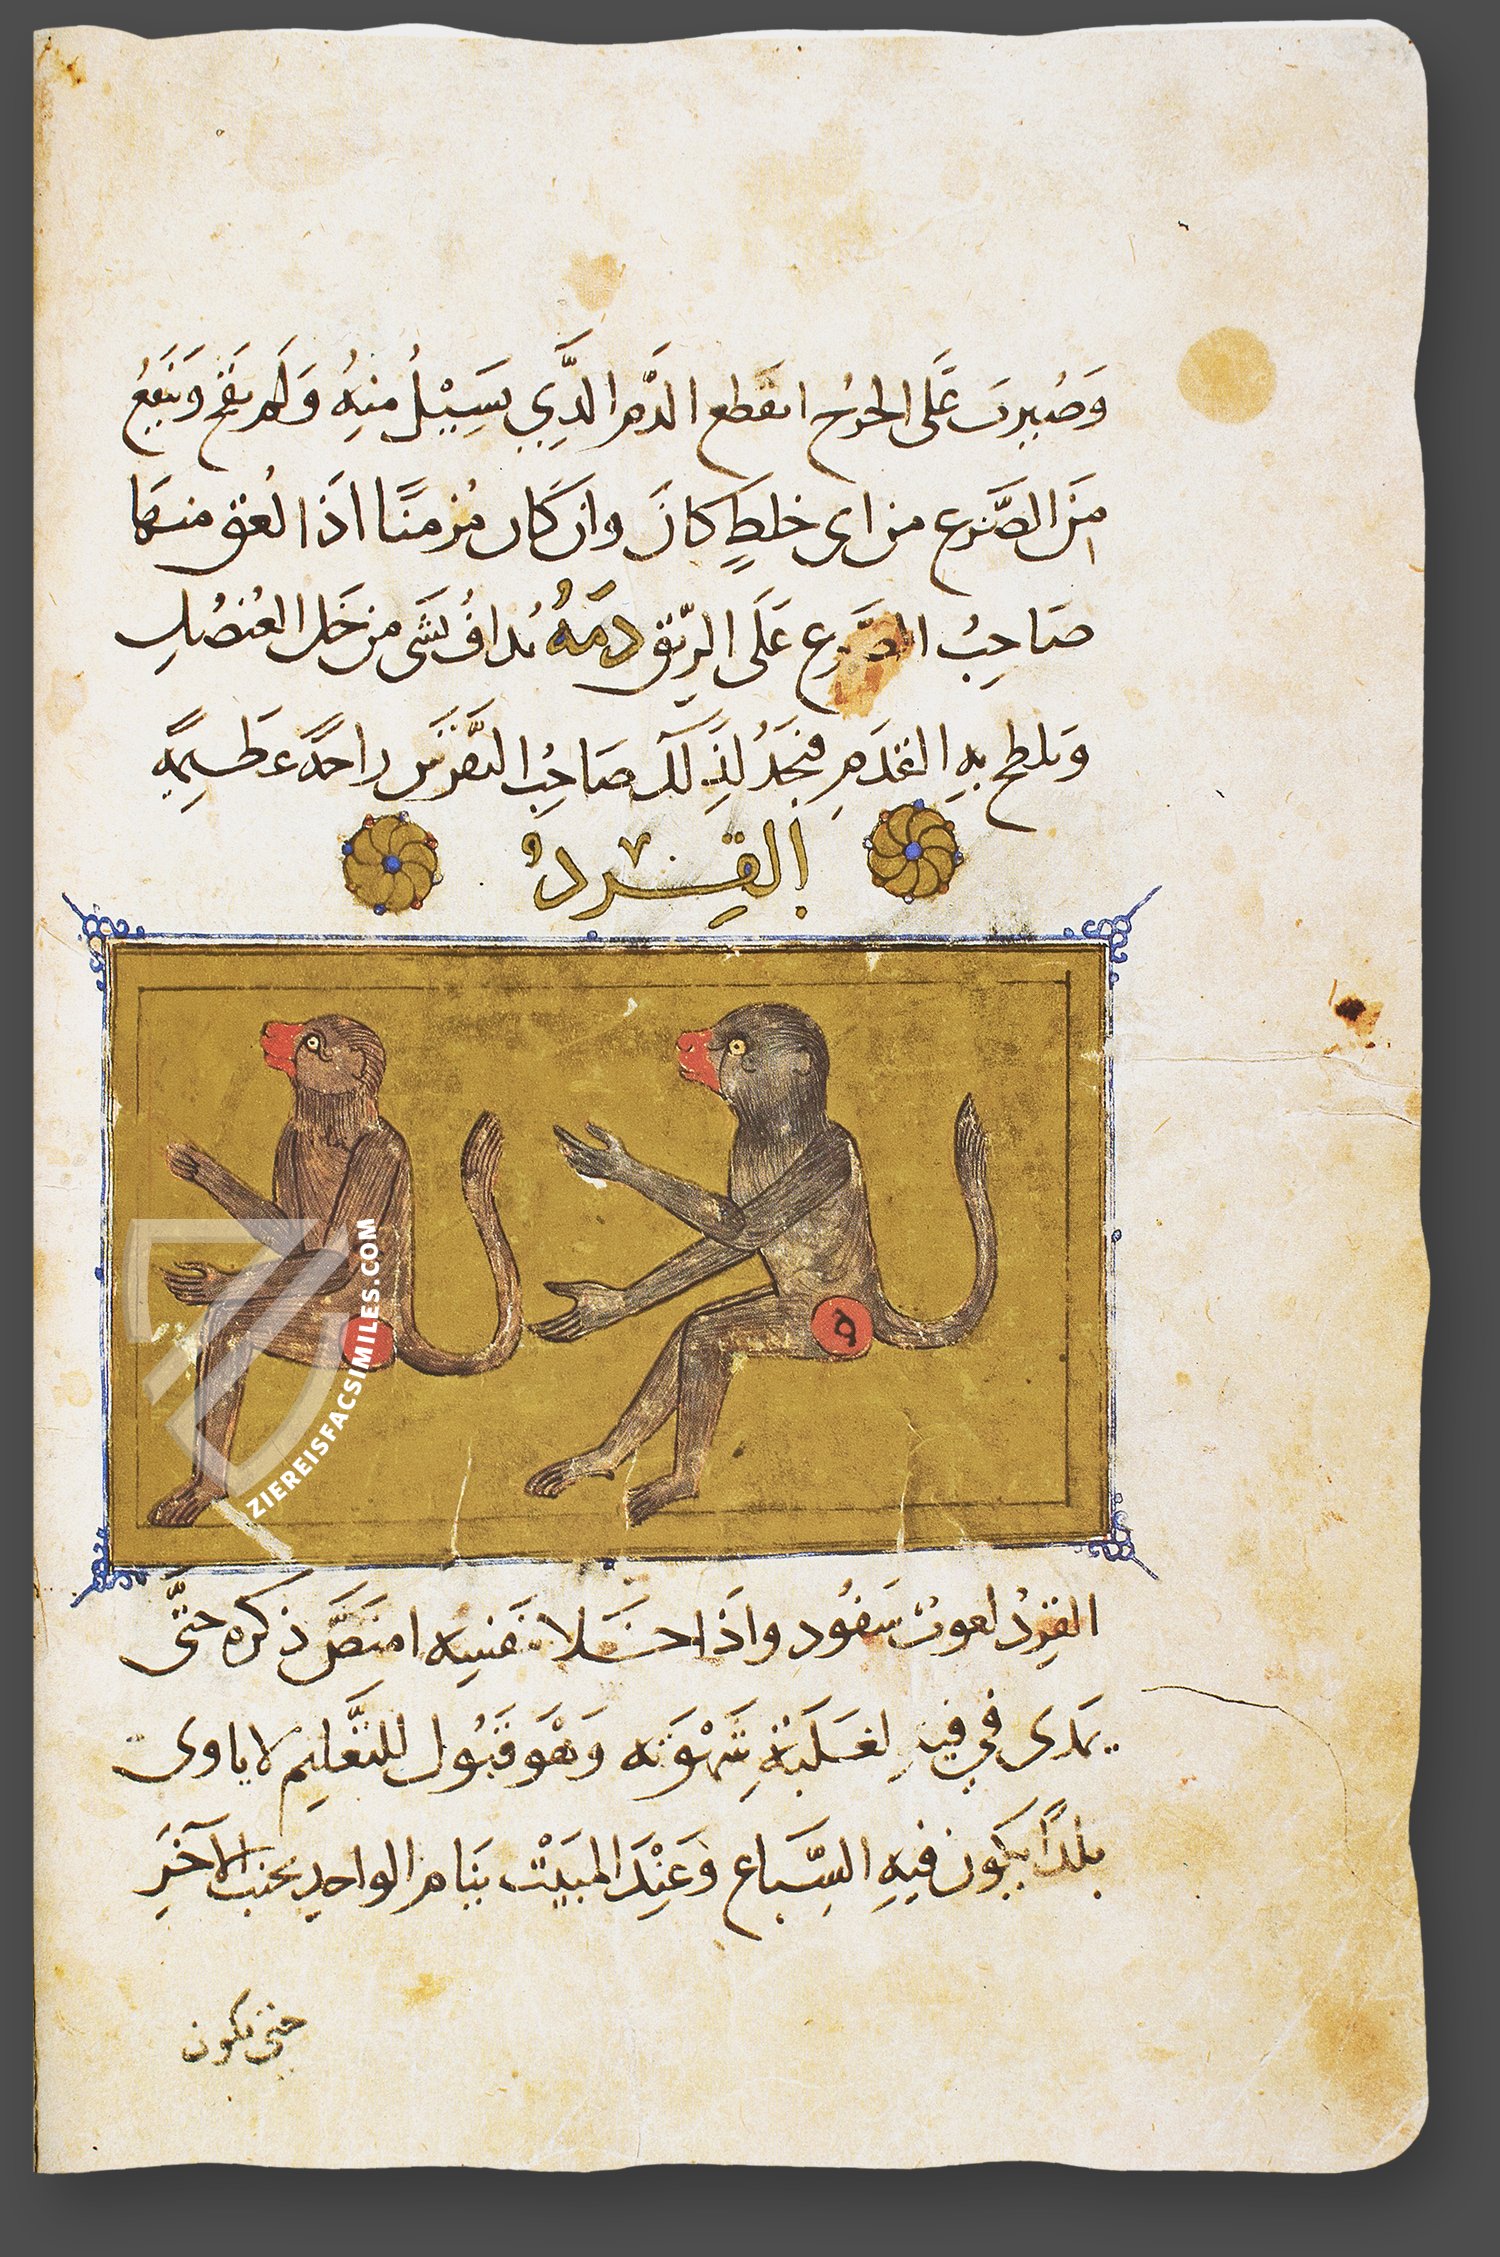 وَصُيرت عَلَى الجرُح انقطع الدَّم الَّذِي يَسِيْلُ منِهُ وَلَم يقح وَينَفعُ
مِنَ الصَّرَع من اى خلطٍ كانَ وان كَان مُزمنًا اذَا لُعق منهَا
صَاحِبُ الصَّرع عَلَى الرِيّق دمَهُ يُدافُ بشَى من خَل العُنصُلِ
وَيلطخ بهِ القدَمِ فيجَدُ لذِلَك صَاحِبُ النقرَسَ راحةً عَظيِمةً
القِردُ
القِردُ لعوبْ سَفُود واذَا خَلا بنَفسِه امتَصَّ ذكره حتَّى
يمَذى في فيهِ لغَلَبَةِ شَهْوَته وَهْوَ قَبُول للتَّعَليم لا ياوى
بلدًا يكون فيهِ السِّبَاع وَعَنِدَ المبَيْت ينَام الواحدِ بجنب الآخَرِ
حتى تكون
ZIEREISFACSIMILES.COM